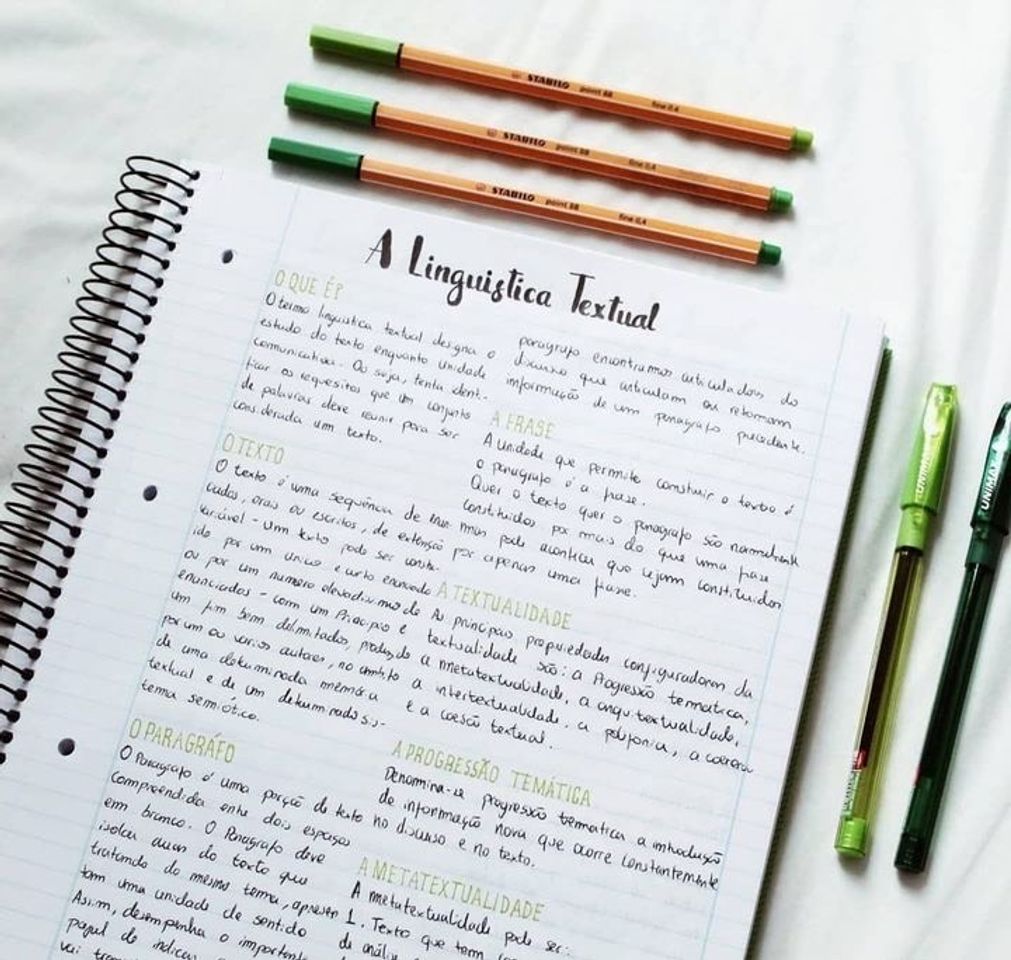 STABILO point 88 fine 0.4
STABILO point 88 fine 0.4
STABILO point 88 fine 0.4
A Linguistica Textual
O QUE É?
O termo linguistica textual designa o
estudo do texto enquanto unidade
comunicativa. Ou seja, tenta identi-
ficar os requesitos que um conjunto
de palavras deve reunir para ser
considerada um texto.
O TEXTO
O texto é uma sequência de enun-
ciados, orais ou escritos, de extenção
variável - Um texto pode ser consti-
ido por um unico e curto enunciado
ou por um numero elevadissimo de
enunciados - com um Principio e
um fim bem delimitados, produzido
por um ou varios autores, no ambito
de uma determinada memória
textual e de um determinado sis-
tema semiótico.
O PARAGRÁFO
O Paragrafo é uma porção de texto
compreendida entre dois espaços
em branco. O Paragrafo deve
isolar duas do texto que
tratando do mesmo tema, apresen
tam uma unidade de sentido
Assim, desempenha o importante
papel de indicar
vai
paragrafo encontramos articuladores do
discurso que articulam ou retomam
informação de um paragrafo precedente.
A FRASE
A unidade que permite construir o texto e
o paragrafo é a frase.
Quer o texto quer o paragrafo são normalmente
constituidos por mais do que uma frase
mas pode acontecer que sejam constituidos
por apenas uma frase.
A TEXTUALIDADE
As principais propriedades configuradoras da
textualidade são: a Progressão tematica,
a metatextualidade, a arqui textualidade,
a intertextualidade, a polifonia, a coerencia
e a coesão textual.
A PROGRESSÃO TEMÁTICA
Denomina-se progressão tematica a introdução
de informação nova que ocorre constantemente
no discurso e no texto.
A METATEXTUALIDADE
A metatextualidade pode ser:
1. Texto que tem
de análise
UNIMAX
UNIMAX